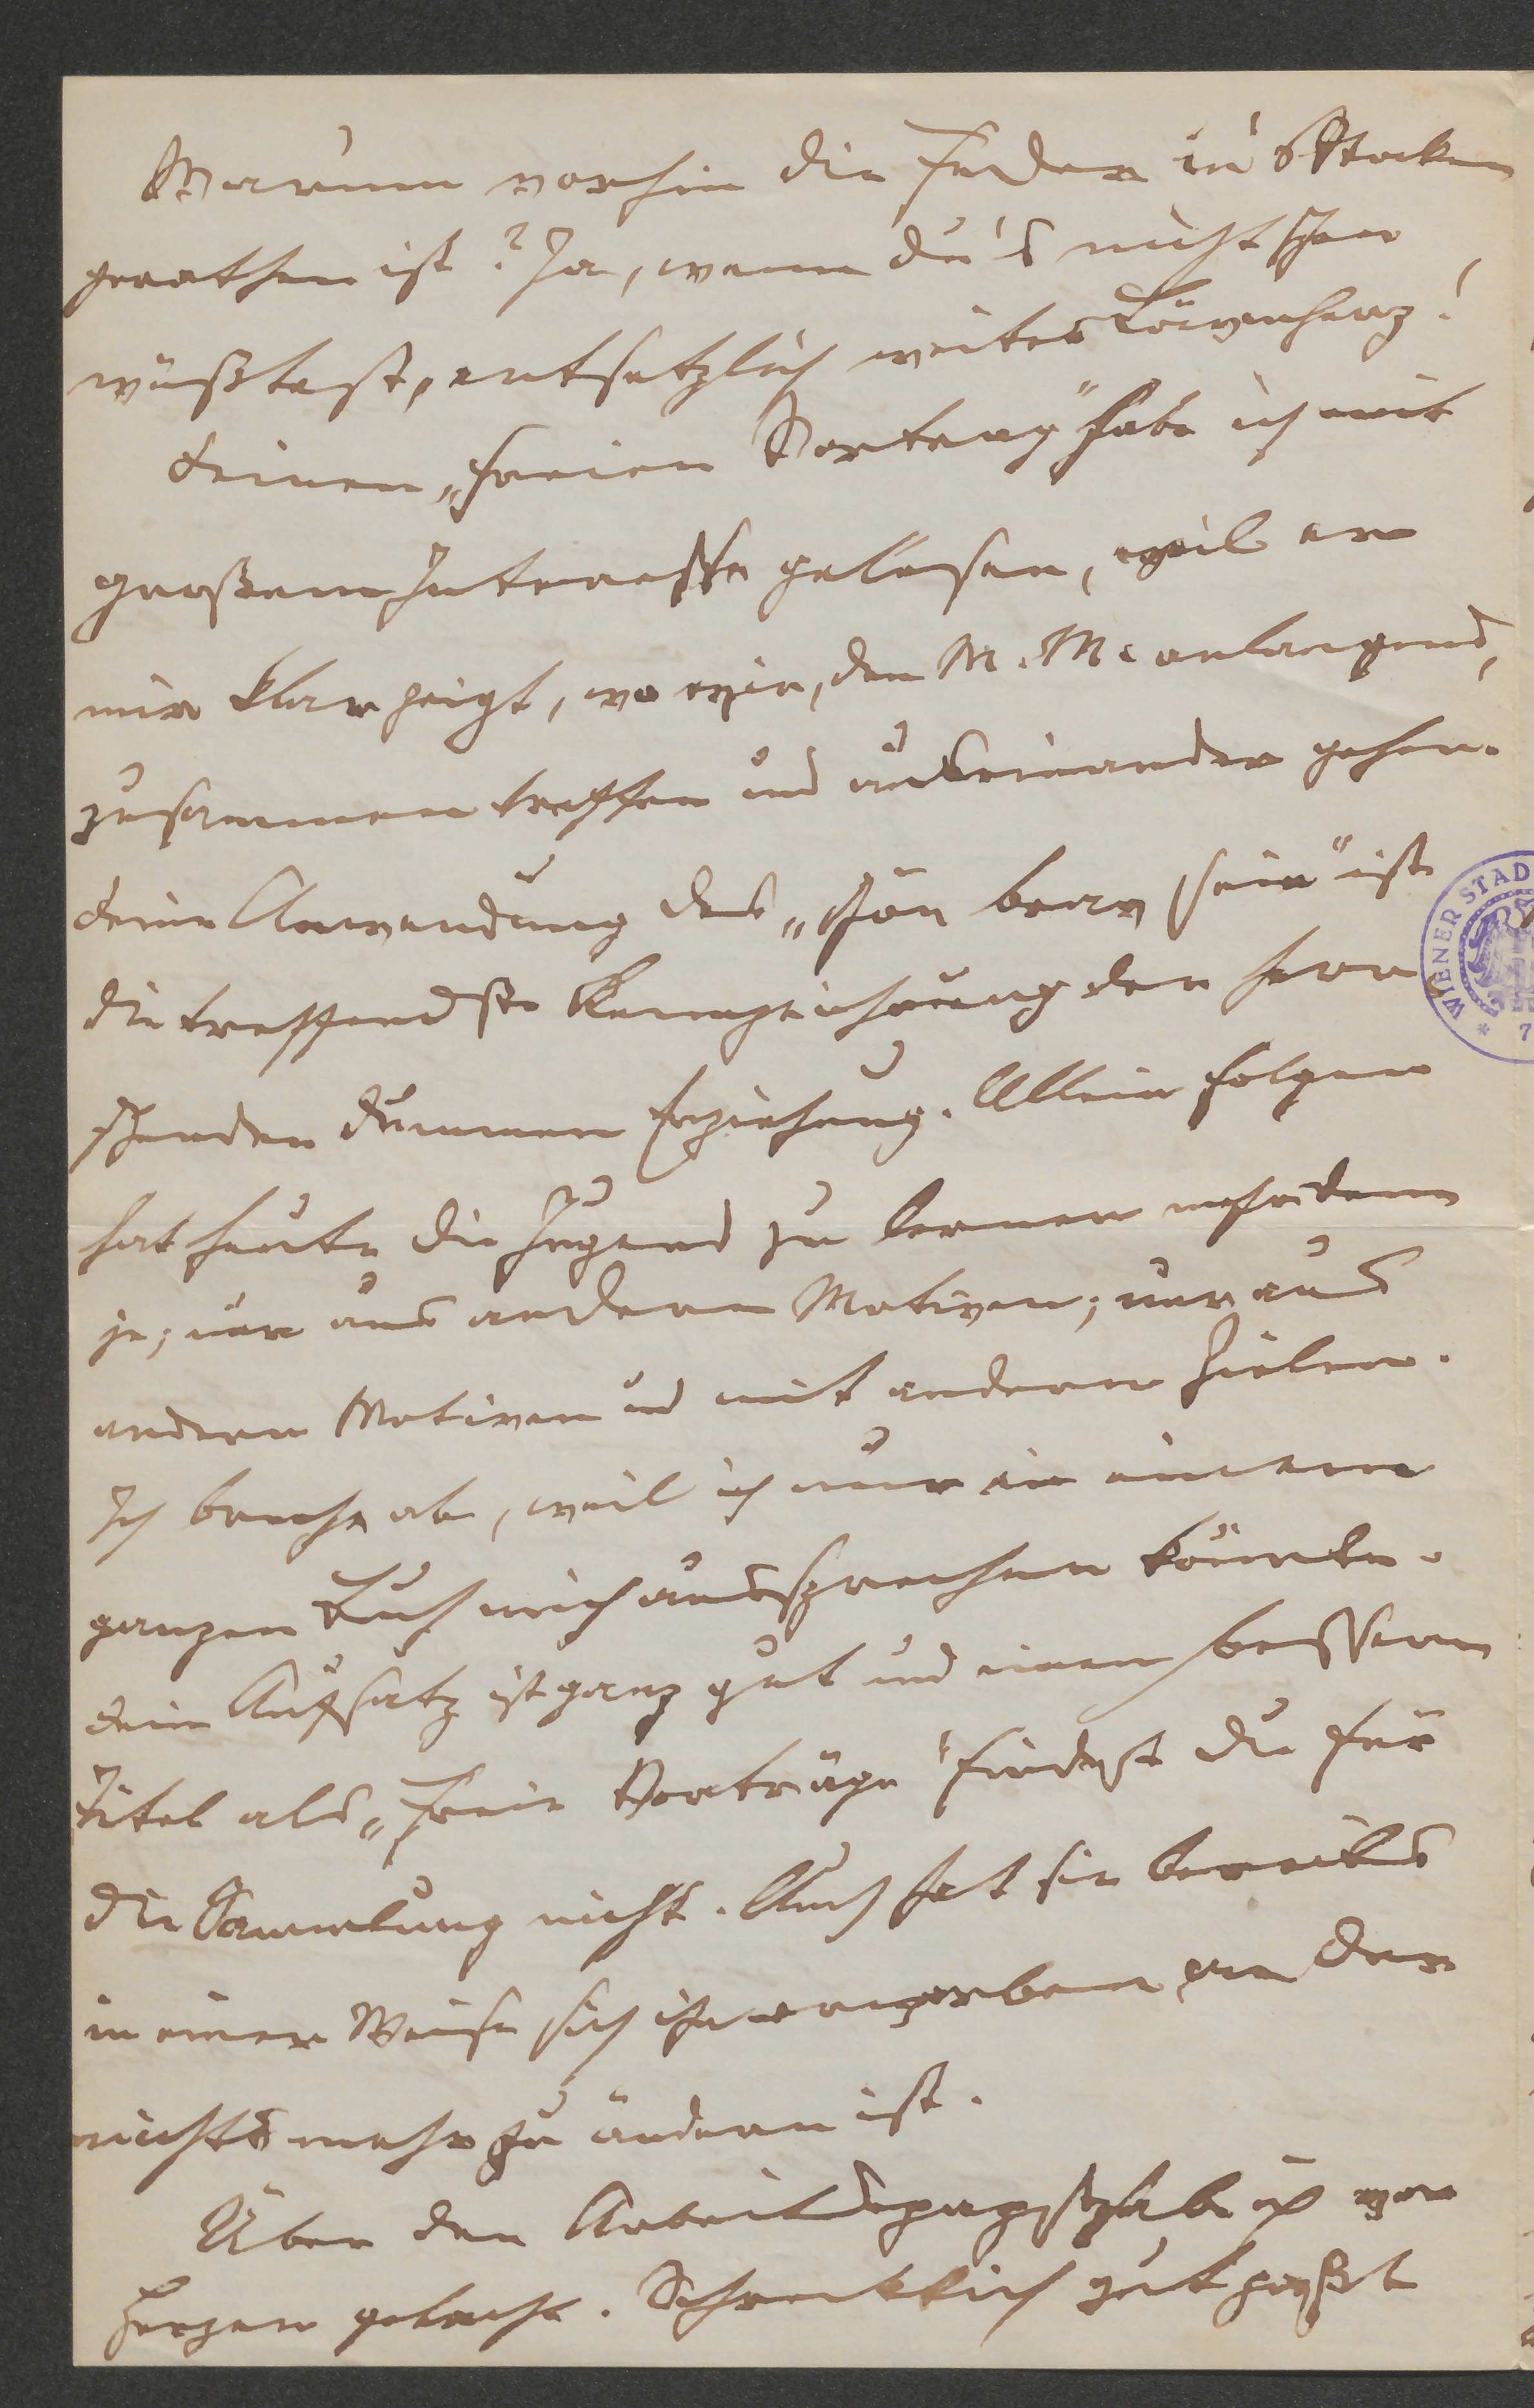 Warum vorhin die Feder in's Stocken
gerathen ist? Ja, wenn du's nicht schon
wüßtest, entsetzlich weites Löwenherz!
Deinen „freien Vortrag" habe ich mit
großem Interesse gelesen, weil er
mir klar zeigt, wo wir, den M. M. anlangend,
zusammen treffen und auseinander gehen.
Deine Anwendung des „schön brav sein" ist
die treffendste Kennzeichnung der herr
schenden dummen Erziehung. Allein folgen
hat heute die Jugend zu lernen mehr denn
je; nur aus andern Motiven; nur aus
andern Motiven und mit andern Zielen.
Ich breche ab, weil ich nur in einem
ganzen Buch mich aussprechen könnte.
Dein Aufsatz ist ganz gut und einen bessern
Titel als „Freie Vorträge" findest du für
die Sammlung nicht. Auch hat sie bereits
in einer Weise sich ihn erworben, an der
nichts mehr zu ändern ist.
Über den hab ich von
Herzen gelacht. Schrecklich gut paßt
WIENER STAD
* 7